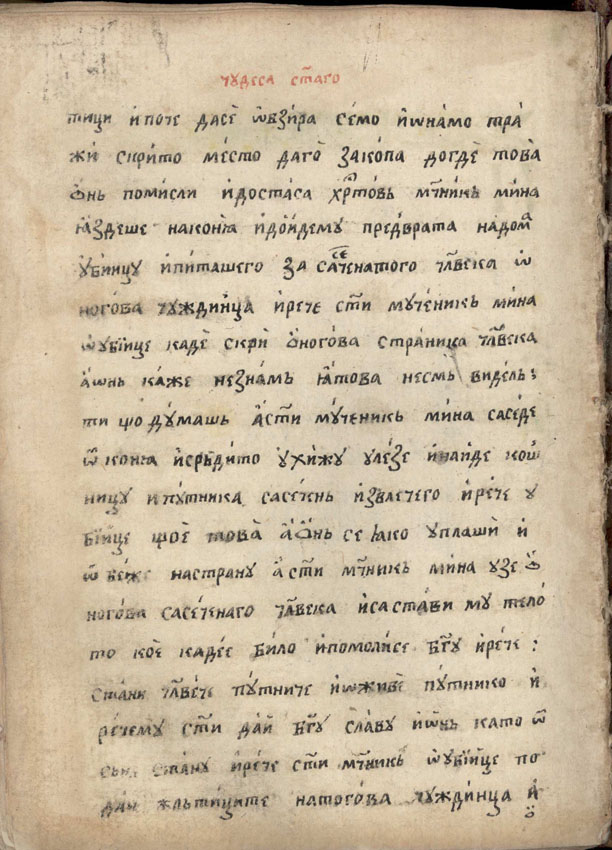 чꙋдеса ст҃аго
тици и҆ поче дасѐ ѡ҆взи́ра се́мо и҆ѡ҆на́мо тра́
жи̇ скри́то ме́сто даго̀ закопа догдѐ това̀
ѻ҆нь помисли и҆доста́са хрⷭ҇товь мч҃никь мина
ꙗ҆́здеше наконꙗ̀ и҆дои́демꙋ предврата надомⷶ
ꙋ҆би́йцꙋ и҆пита́шего за сасече́натого чл҃века ѡ҆
ного́ва чꙋжди́нца и҆рече ст҃и мꙋ́ченикь мина
ѡ҆ꙋбі́йце кадѐ скрѝ ѻ҆ного́ва стра́ника чл҃века
а҆ѡ҆нь ка́же незна́мь ꙗ҆́това не́смь видель:
ти що дꙋ́машь а҆ст҃и мꙋ́ченикь ми́на саседе
ѿ конꙗ̀ и҆срьди́то ꙋ҆хи́жꙋ ꙋле́зе и҆на́йде кош
ницꙋ и пꙋ́тника сасе́чень и҆звлечего и҆ре́че ꙋ
бі́йце щоѐ това̀ а҆ѻ҆́нь се ꙗ҆ко ꙋплашѝ и҆
ѿбеже настранꙋ а҆ст҃и мч҃никь мина ꙋзе ѻ҆
ного́ва сасе́ченаго чл҃века и҆саста́ви мꙋ тело́
то коѐ каде́е би́ло и҆помоли́се бг҃ꙋ и҆ре́че:
стани чл҃вече пꙋ́тниче и҆ѡ҆живѐ пꙋ́тнико и҆
ре́чемꙋ ст҃и да́й бг҃ꙋ сла́вꙋ и҆ѡ҆́нь като ѿ
сьнь ста́нꙋ и҆ре́че ст҃и мч҃никь ѡ҆ꙋбі́йце по
да́й жльти́ците натого́ва чꙋжди́нца и҆
ѻ҆